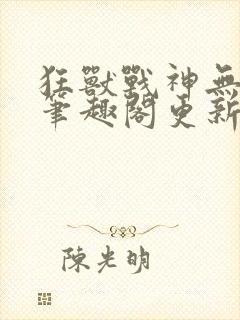 狂獸戰神無
筆趣閣更新
陳光明